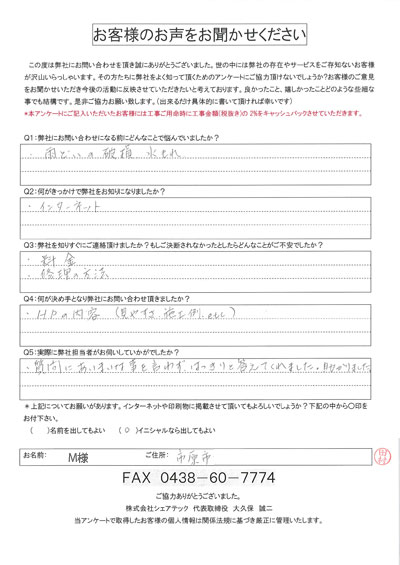 お客様のお声をお聞かせください
この度は弊社にお問い合わせを頂き誠にありがとうございました。世の中には弊社の存在やサービスをご存知ないお客様
が沢山いらっしゃいます。その方たちに弊社をよく知って頂くためのアンケートにご協力頂けないでしょうか?お客様のご意見
をお聞かせいただき今後の活動に反映させていただきたいと考えております。良かったこと、嬉しかったことどのような些細な
事でも結構です。是非ご協力お願い致します。(出来るだけ具体的に書いて頂ければ幸いです)
*本アンケートにご記入いただいたお客様には工事ご用命時に工事金額(税抜き)の2%をキャッシュバックさせていただきます。
Q1:弊社にお問い合わせになる前にどんなことで悩んでいましたか?
・雨どいの破損、水もれ
Q2:何がきっかけで弊社をお知りになりましたか?
・インターネット
Q3:弊社を知りすぐにご連絡頂けましたか?もしご決断されなかったとしたらどんなことがご不安でしたか?
・料金
・修理の方法
Q4:何が決め手となり弊社にお問い合わせ頂きましたか?
・HPの内容(見やすさ、施工例、etc)
Q5:実際に弊社担当者がお伺いしていかがでしたか?
・質問にあいまいな事を言わず、はっきりと答えてくれました。助かりました
*上記についてお願いがあります。インターネットや印刷物に掲載させて頂いてもよろしいでしょうか?下記の中から〇印を
お付下さい。
( )名前を出してもよい (〇)イニシャルなら出してもよい
お名前: M様 ご住所: 市原市
FAX 0438-60-7774
ご協力ありがとうございました。
株式会社シェアテック 代表取締役 大久保 誠二
当アンケートで取得したお客様の個人情報は関係法規に基づき厳正に管理いたします。